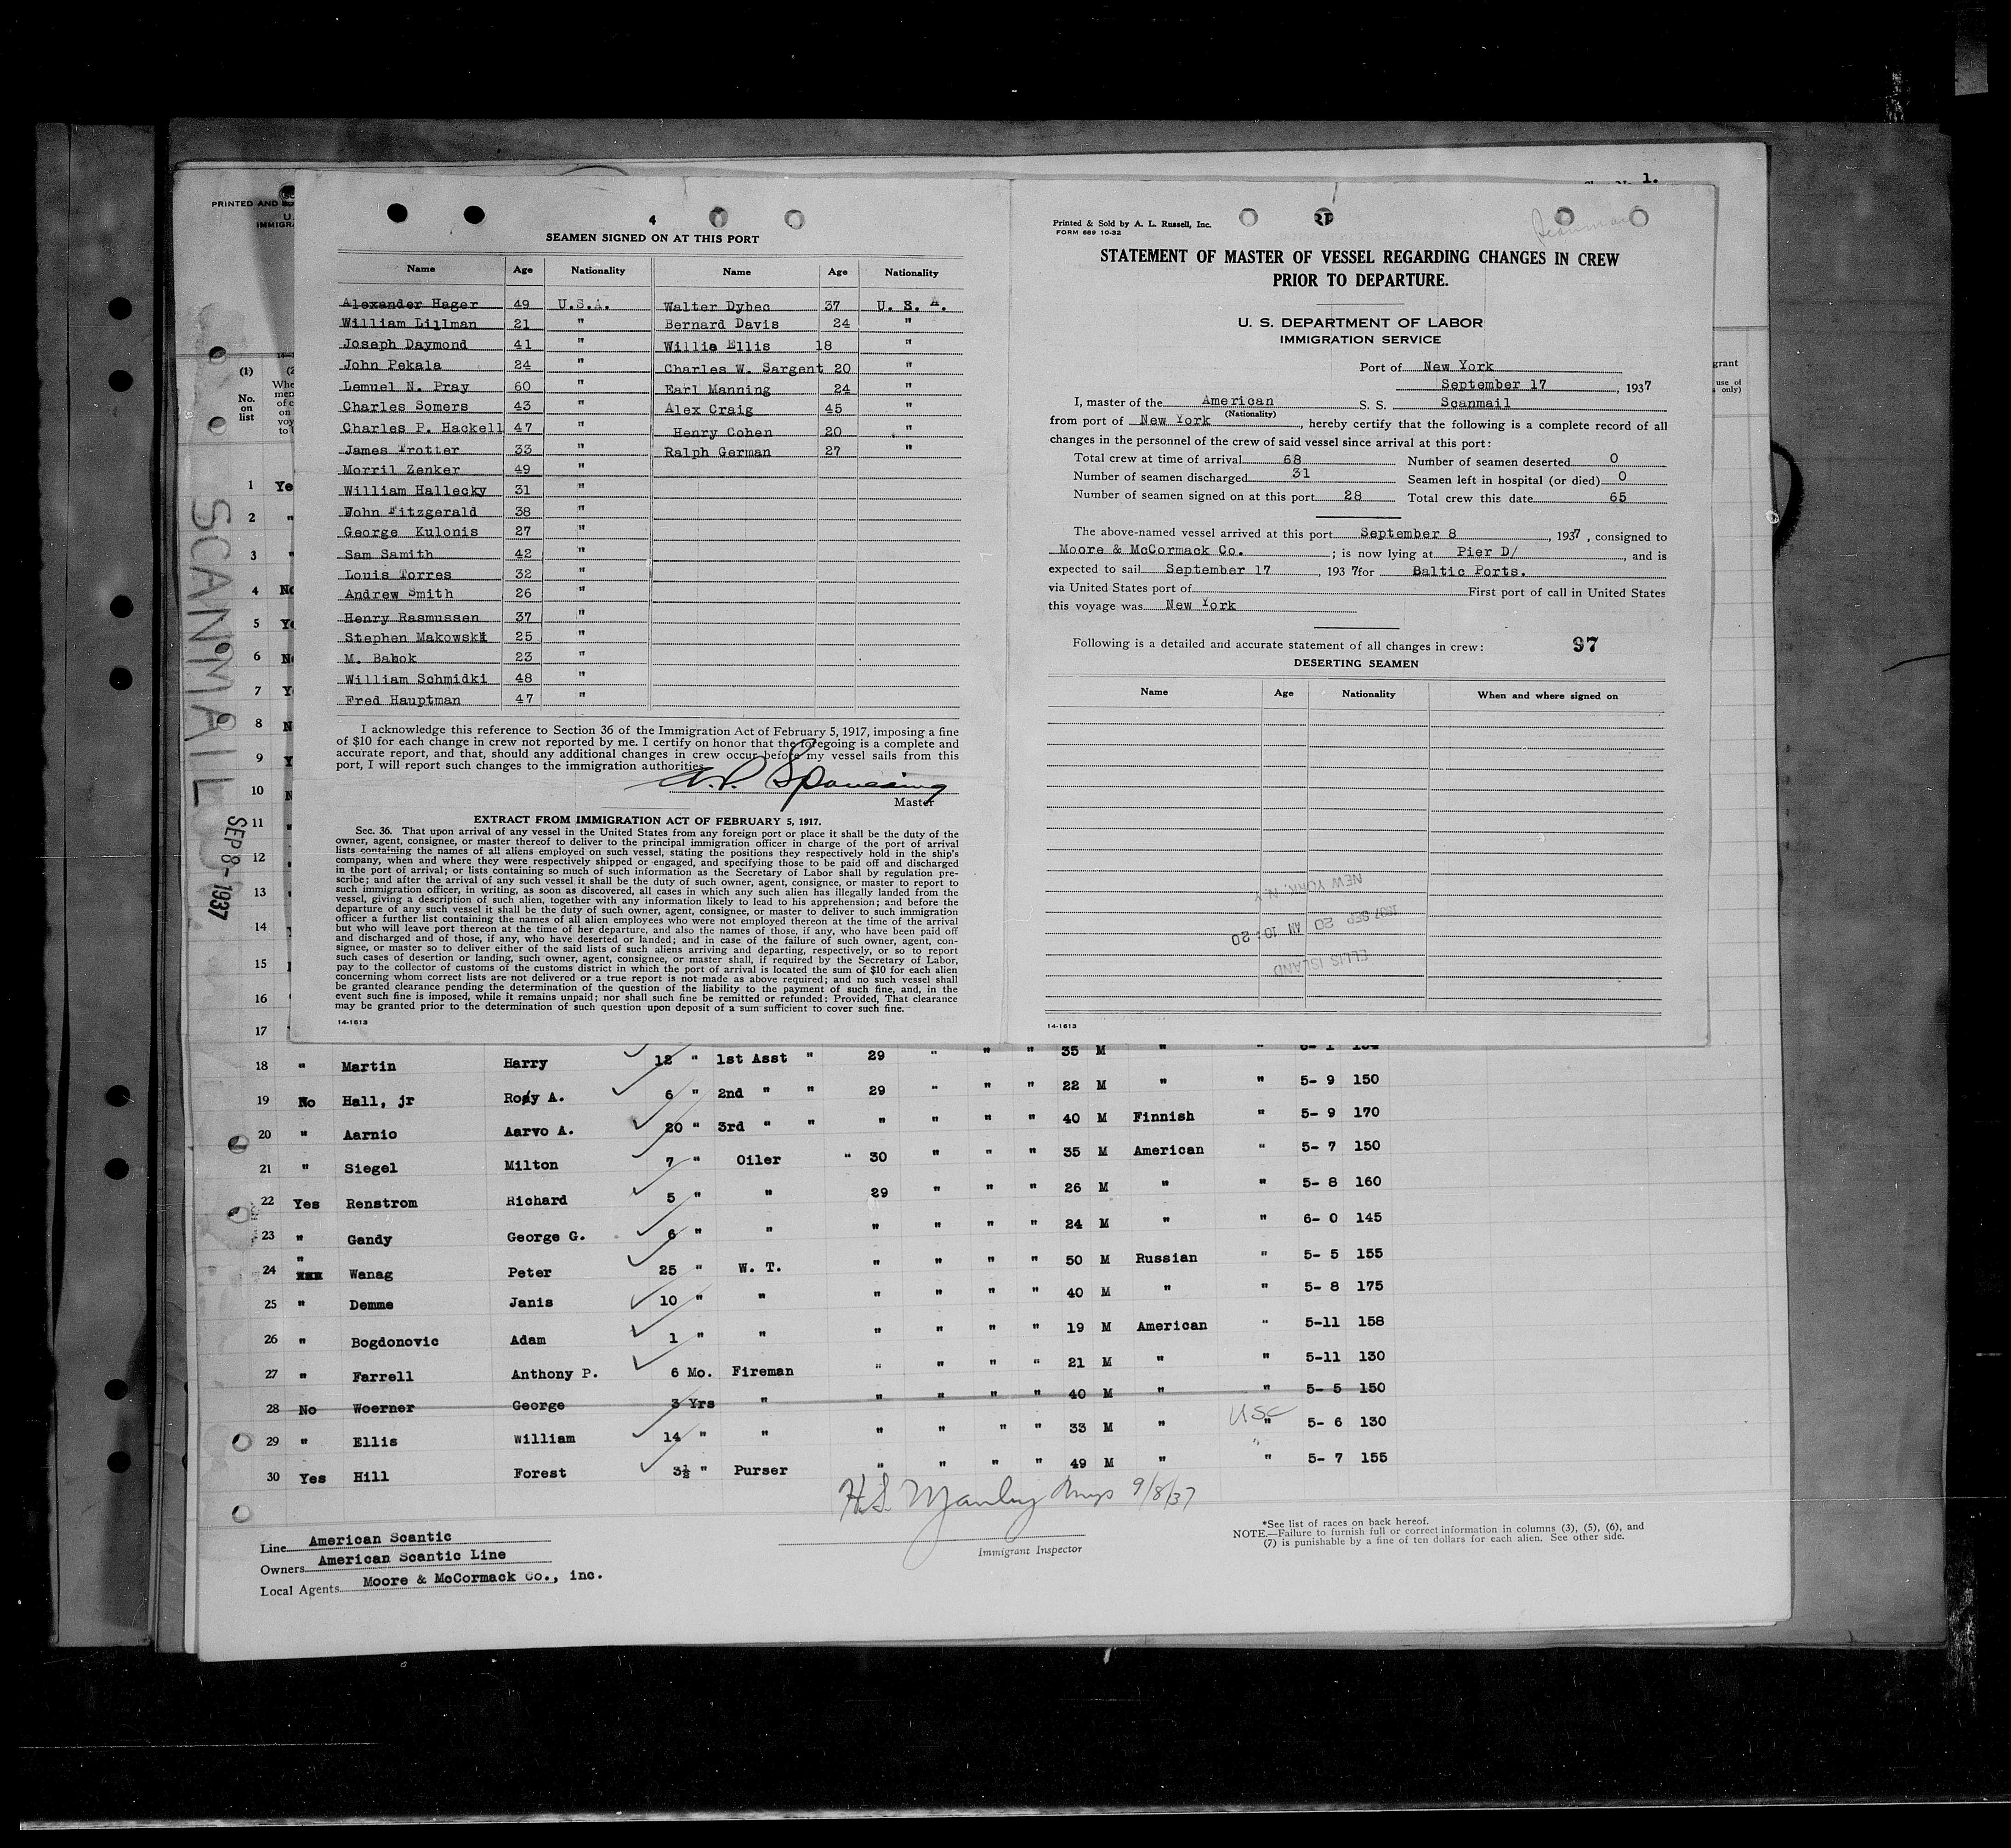 1.
PRINTED AND
IMMIGRA
4
SEAMEN SIGNED ON AT THIS PORT
Name Age Nationality Name Age Nationality
Alexander Hager 49 U.S.A. Walter Dybec 37 U. S. A.
William Lillman 21 " Bernard Davis 24 "
Joseph Daymond 41 " Willie Ellis 18 "
John Pekala 24 " Charles W. Sargent 20 "
Lemuel N. Pray 60 " Earl Manning 24 "
Charles Somers 43 " Alex Craig 45 "
Charles P. Hackell 47 " Henry Cohen 20 "
James Trotter 33 " Ralph German 27 "
Morril Zenker 49 "
William Hallecky 31 "
John Fitzgerald 38 "
George Kulonis 27 "
Sam Samith 42 "
Louis Torres 32 "
Andrew Smith 26 "
Henry Rasmussen 37 "
Stephen Makowski 25 "
M. Babok 23 "
William Schmidki 48 "
Fred Hauptman 47 "
I acknowledge this reference to Section 36 of the Immigration Act of February 5, 1917, imposing a fine
of $10 for each change in crew not reported by me. I certify on honor that the foregoing is a complete and
accurate report, and that, should any additional changes in crew occur before my vessel sails from this
port, I will report such changes to the immigration authorities.
Master
EXTRACT FROM IMMIGRATION ACT OF FEBRUARY 5, 1917.
Sec. 36. That upon arrival of any vessel in the United States from any foreign port or place it shall be the duty of the
owner, agent, consignee, or master thereof to deliver to the principal immigration officer in charge of the port of arrival
lists containing the names of all aliens employed on such vessel, stating the positions they respectively hold in the ship's
company, when and where they were respectively shipped or engaged, and specifying those to be paid off and discharged
in the port of arrival; or lists containing so much of such information as the Secretary of Labor shall by regulation pre-
scribe; and after the arrival of any such vessel it shall be the duty of such owner, agent, consignee, or master to report to
such immigration officer, in writing, as soon as discovered, all cases in which any such alien has illegally landed from the
vessel, giving a description of such alien, together with any information likely to lead to his apprehension; and before the
departure of any such vessel it shall be the duty of such owner, agent, consignee, or master to deliver to such immigration
officer a further list containing the names of all alien employees who were not employed thereon at the time of the arrival
but who will leave port thereon at the time of her departure, and also the names of those, if any, who have been paid off
and discharged and of those, if any, who have deserted or landed; and in case of the failure of such owner, agent, con-
signee, or master so to deliver either of the said lists of such aliens arriving and departing, respectively, or so to report
such cases of desertion or landing, such owner, agent, consignee, or master shall, if required by the Secretary of Labor,
pay to the collector of customs of the customs district in which the port of arrival is located the sum of $10 for each alien
concerning whom correct lists are not delivered or a true report is not made as above required; and no such vessel shall
be granted clearance pending the determination of the question of the liability to the payment of such fine, and, in the
event such fine is imposed, while it remains unpaid; nor shall such fine be remitted or refunded: Provided, That clearance
may be granted prior to the determination of such question upon deposit of a sum sufficient to cover such fine.
14-1613
Printed & Sold by A. L. Russell, Inc.
FORM 689 10-32
STATEMENT OF MASTER OF VESSEL REGARDING CHANGES IN CREW
PRIOR TO DEPARTURE.
U. S. DEPARTMENT OF LABOR
IMMIGRATION SERVICE
Port of New York
September 17, 1937
I, master of the American S. S. Scanmail
(Nationality)
from port of New York, hereby certify that the following is a complete record of all
changes in the personnel of the crew of said vessel since arrival at this port:
Total crew at time of arrival 68 Number of seamen deserted 0
Number of seamen discharged 31 Seamen left in hospital (or died) 0
Number of seamen signed on at this port 28 Total crew this date 65
The above-named vessel arrived at this port September 8, 1937, consigned to
Moore & McCormack Co. ; is now lying at Pier D/, and is
expected to sail September 17, 1937 for Baltic Ports.
via United States port of First port of call in United States
this voyage was New York
Following is a detailed and accurate statement of all changes in crew: 97
DESERTING SEAMEN
Name Age Nationality When and where signed on
NEW YORK, N.Y.
1937 SEP 20 AM 10:20
ELLIS ISLAND
14-1613
SCANMAIL
SEP 8 - 1937
(1)
No.
on
list
1 Ye
2 "
3 "
4 No
5 Ye
6 No
7 Y
8 N
9 Y
10 N
11 "
12
13
14
15
16
17
18 " Martin Harry 12 " 1st Asst " 29 " " " 35 M " "
19 No Hall, jr Roy A. 6 " 2nd " " 29 " " " 22 M " " 5- 9 150
20 " Aarnio Aarvo A. 20 " 3rd " " " " " " 40 M Finnish " 5- 9 170
21 " Siegel Milton 7 " Oiler " 30 " " " 35 M American " 5- 7 150
22 Yes Renstrom Richard 5 " " 29 " " " 26 M " " 5- 8 160
23 " Gandy George G. 6 " " " " " " 24 M " " 6- 0 145
24 " Wanag Peter 25 " W. T. " " " " 50 M Russian " 5- 5 155
25 " Demme Janis 10 " " " " " " 40 M " " 5- 8 175
26 " Bogdonovic Adam 1 " " " " " " 19 M American " 5-11 158
27 " Farrell Anthony P. 6 Mo. Fireman " " " " 21 M " " 5-11 130
28 No Woerner George 3 Yrs " " " " " 40 M " " 5- 5 150
29 " Ellis William 14 " " " " " " 33 M " USC " 5- 6 130
30 Yes Hill Forest 3½ " Purser " " " " 49 M " " 5- 7 155
H.S. Manley 9/8/37
Immigrant Inspector
Line American Scantic
Owners American Scantic Line
Local Agents Moore & McCormack Co., inc.
*See list of races on back hereof.
NOTE.—Failure to furnish full or correct information in columns (3), (5), (6), and
(7) is punishable by a fine of ten dollars for each alien. See other side.